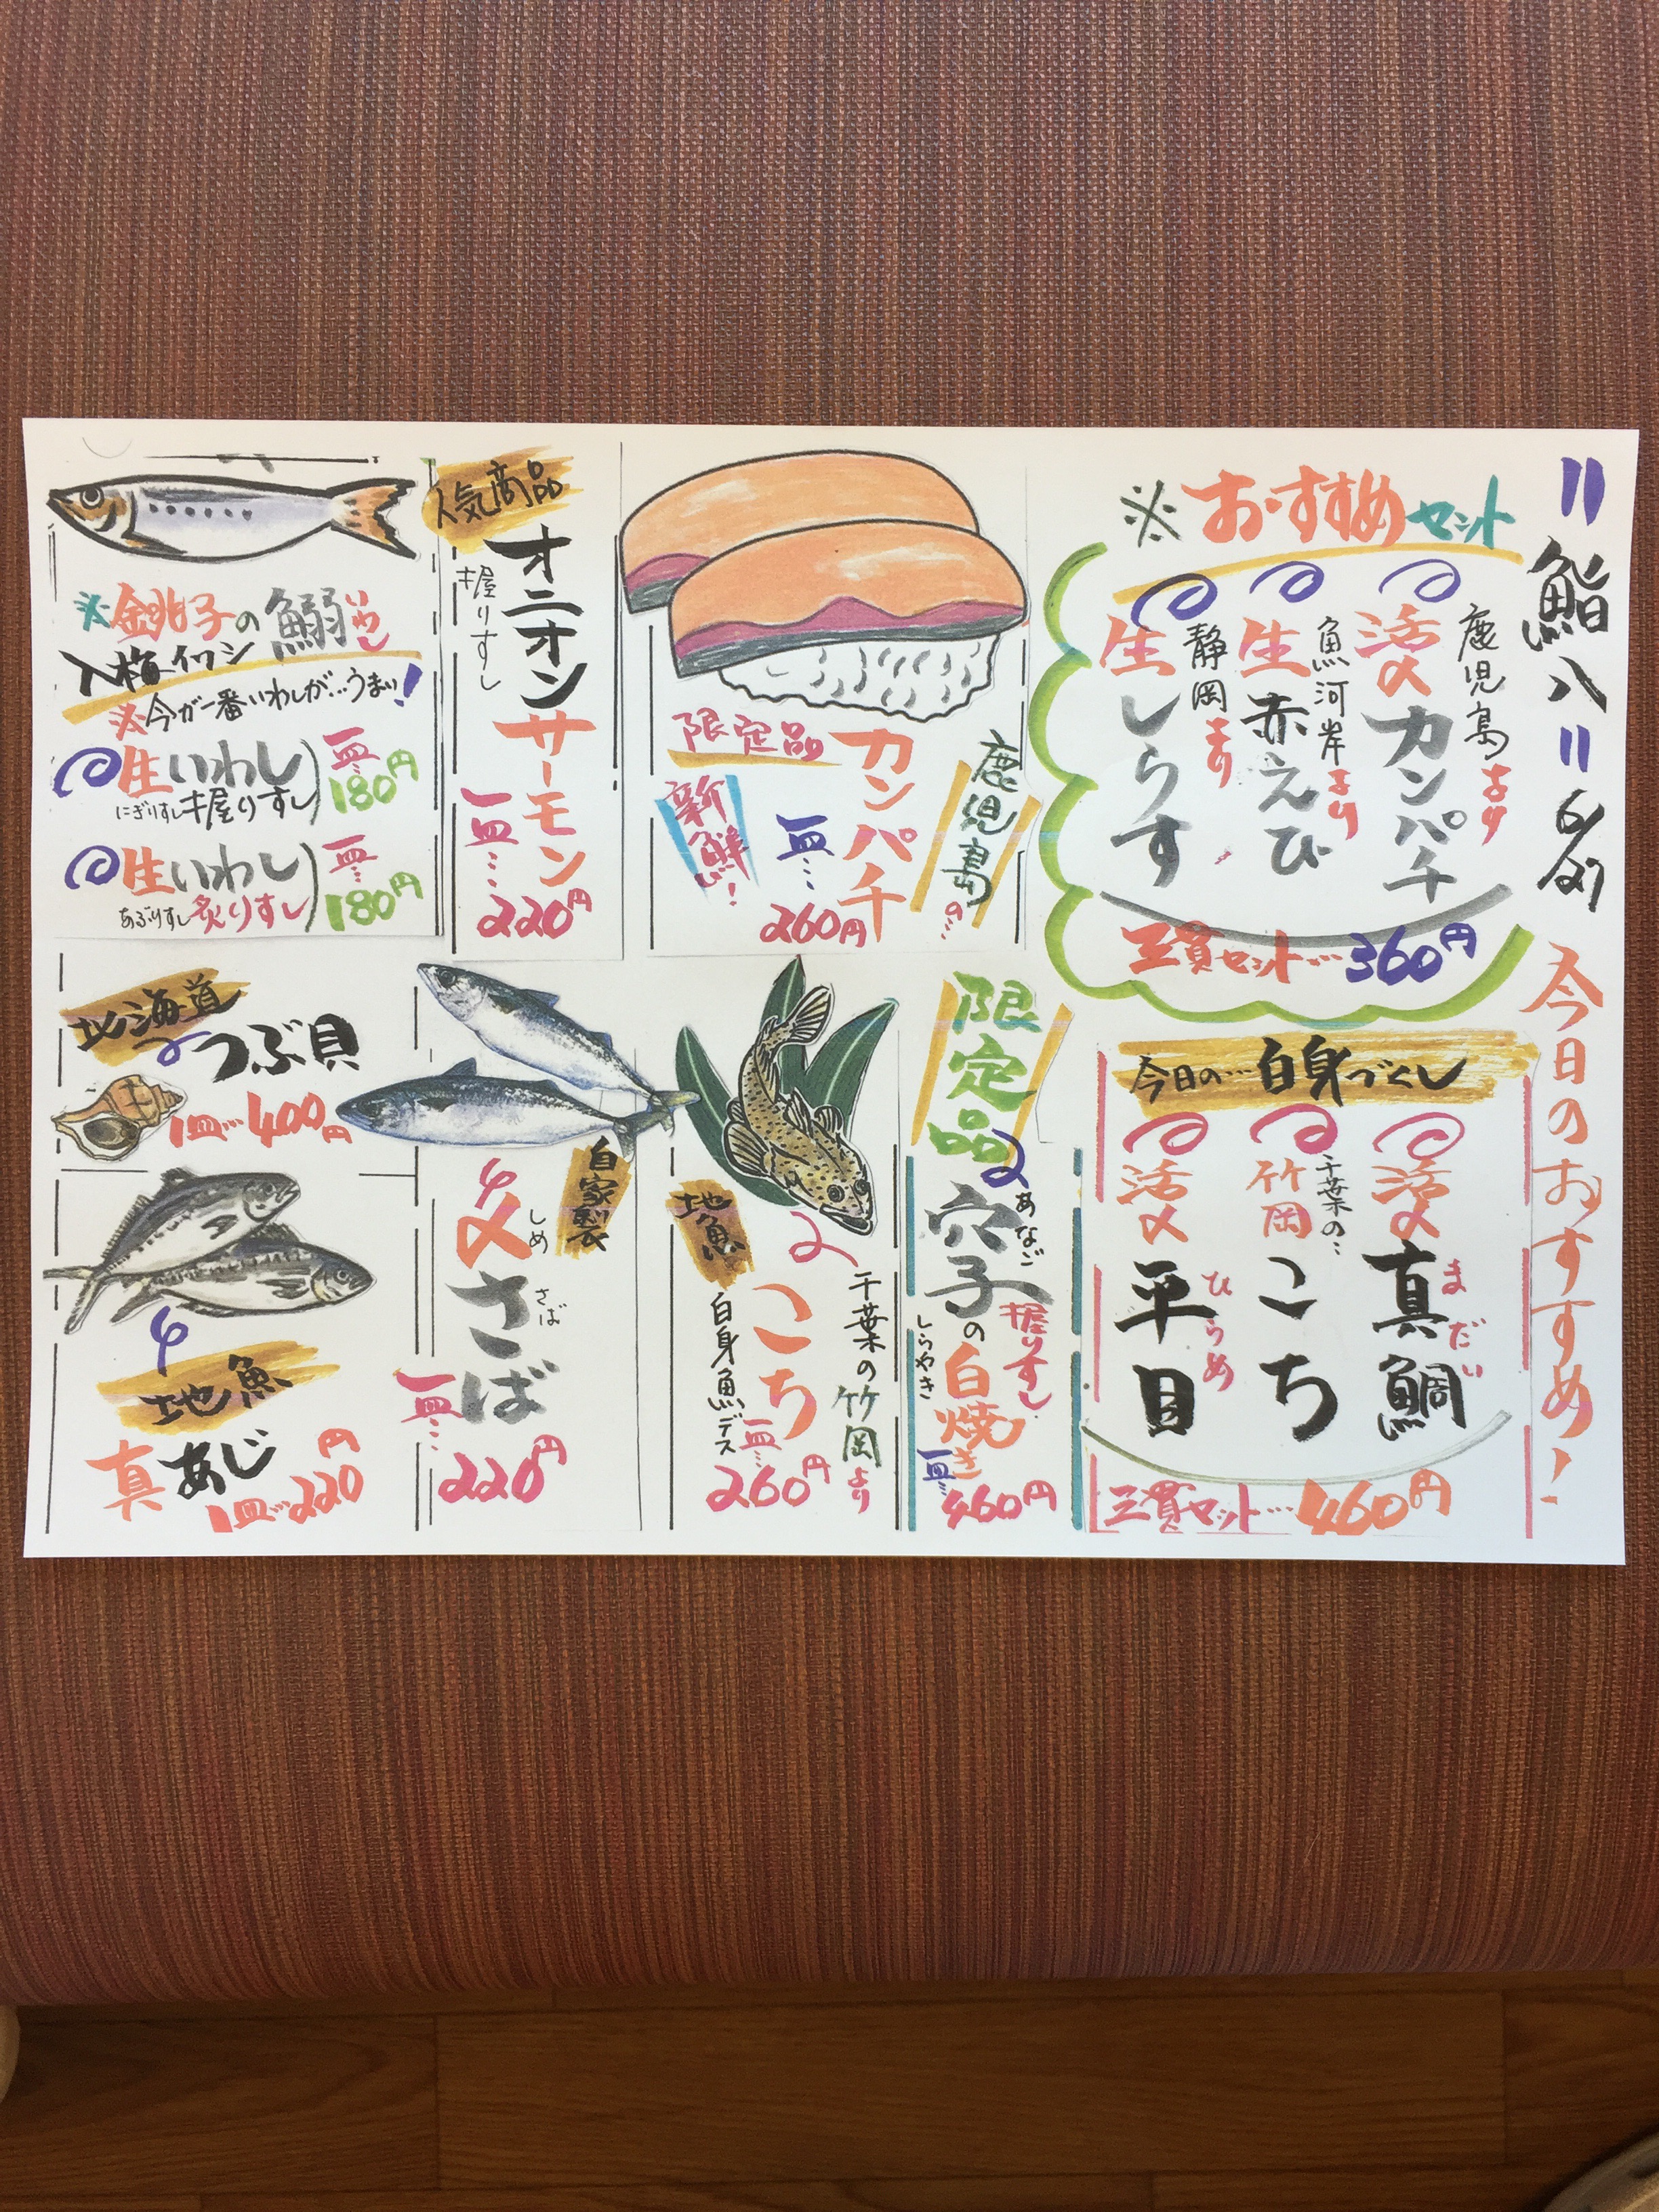 〃鮨八〃 6/27
今日のおすすめ!
※おすすめセット
鹿児島より
活〆カンパチ
魚河岸より
生赤えび
静岡より
生しらす
三貫セット…360円
今日の…白身づくし
活〆真鯛
まだい
千葉の…
竹岡こち
活〆平目
ひらめ
三貫セット…460円
鹿児島の…
カンパチ
限定品
新鮮い!
一皿…
260円
人気商品
オニオンサーモン
握りすし
一皿…
220円
※銚子の鰯
いわし
入梅イワシ
※今が一番いわしが…うまい!
生いわし
にぎりすし 握りすし
一皿…
180円
生いわし
あぶりすし 炙りすし
一皿…
180円
限定品
穴子の白焼き
あなご
握りすし
しらやき
一皿…
460円
地魚
千葉の竹岡より
こち
白身魚デス
一皿…
260円
自家製
〆さば
しめ
さば
一皿…
220円
北海道
つぶ貝
1皿…400円
地魚
真あじ
1皿…220円